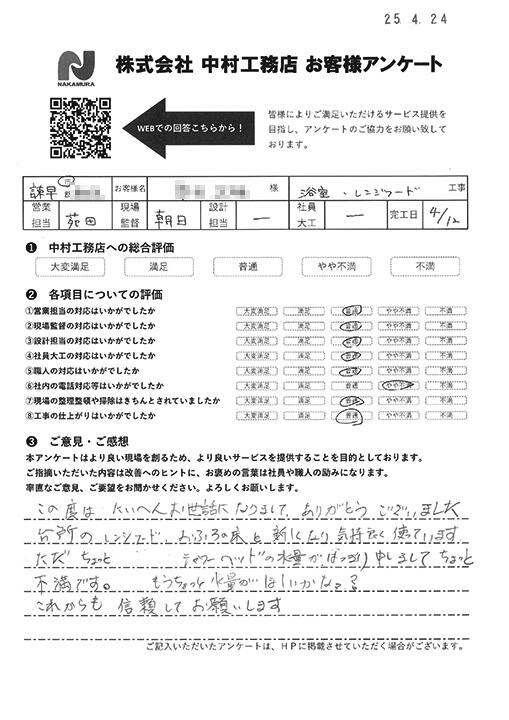 25. 4. 24
NAKAMURA
株式会社 中村工務店 お客様アンケート
WEBでの回答こちらから！
皆様によりご満足いただけるサービス提供を
目指し、アンケートのご協力をお願い致して
おります。
諫早 市 郡 お客様名 様 浴室・レンジフード 工事
営業担当 苑田 現場監督 朝日 設計担当 ー 社員大工 ー 完工日 4/12
❶ 中村工務店への総合評価
大変満足 満足 普通 やや不満 不満
❷ 各項目についての評価
①営業担当の対応はいかがでしたか 大変満足 満足 普通 やや不満 不満
②現場監督の対応はいかがでしたか 大変満足 満足 普通 やや不満 不満
③設計担当の対応はいかがでしたか 大変満足 満足 普通 やや不満 不満
④社員大工の対応はいかがでしたか 大変満足 満足 普通 やや不満 不満
⑤職人の対応はいかがでしたか 大変満足 満足 普通 やや不満 不満
⑥社内の電話対応等はいかがでしたか 大変満足 満足 普通 やや不満 不満
⑦現場の整理整頓や掃除はきちんとされていましたか 大変満足 満足 普通 やや不満 不満
⑧工事の仕上がりはいかがでしたか 大変満足 満足 普通 やや不満 不満
❸ ご意見・ご感想
本アンケートはより良い現場を創るため、より良いサービスを提供することを目的としております。
ご指摘いただいた内容は改善へのヒントに、お褒めの言葉は社員や職人の励みになります。
率直なご意見、ご要望をお聞かせください。よろしくお願いします。
この度は たいへんお世話になりまして、ありがとうございました
台所のレンジフード おふろの床と新しくなり気持良く使ています
ただ ちょっと シャワーヘッドの水量が 申しまして ちょっと
不満です。 もうちょっと水量がほしいかなぁ?
これからも 信頼してお願いします
ご記入いただいたアンケートは、ＨＰに掲載させていただく場合がございます。